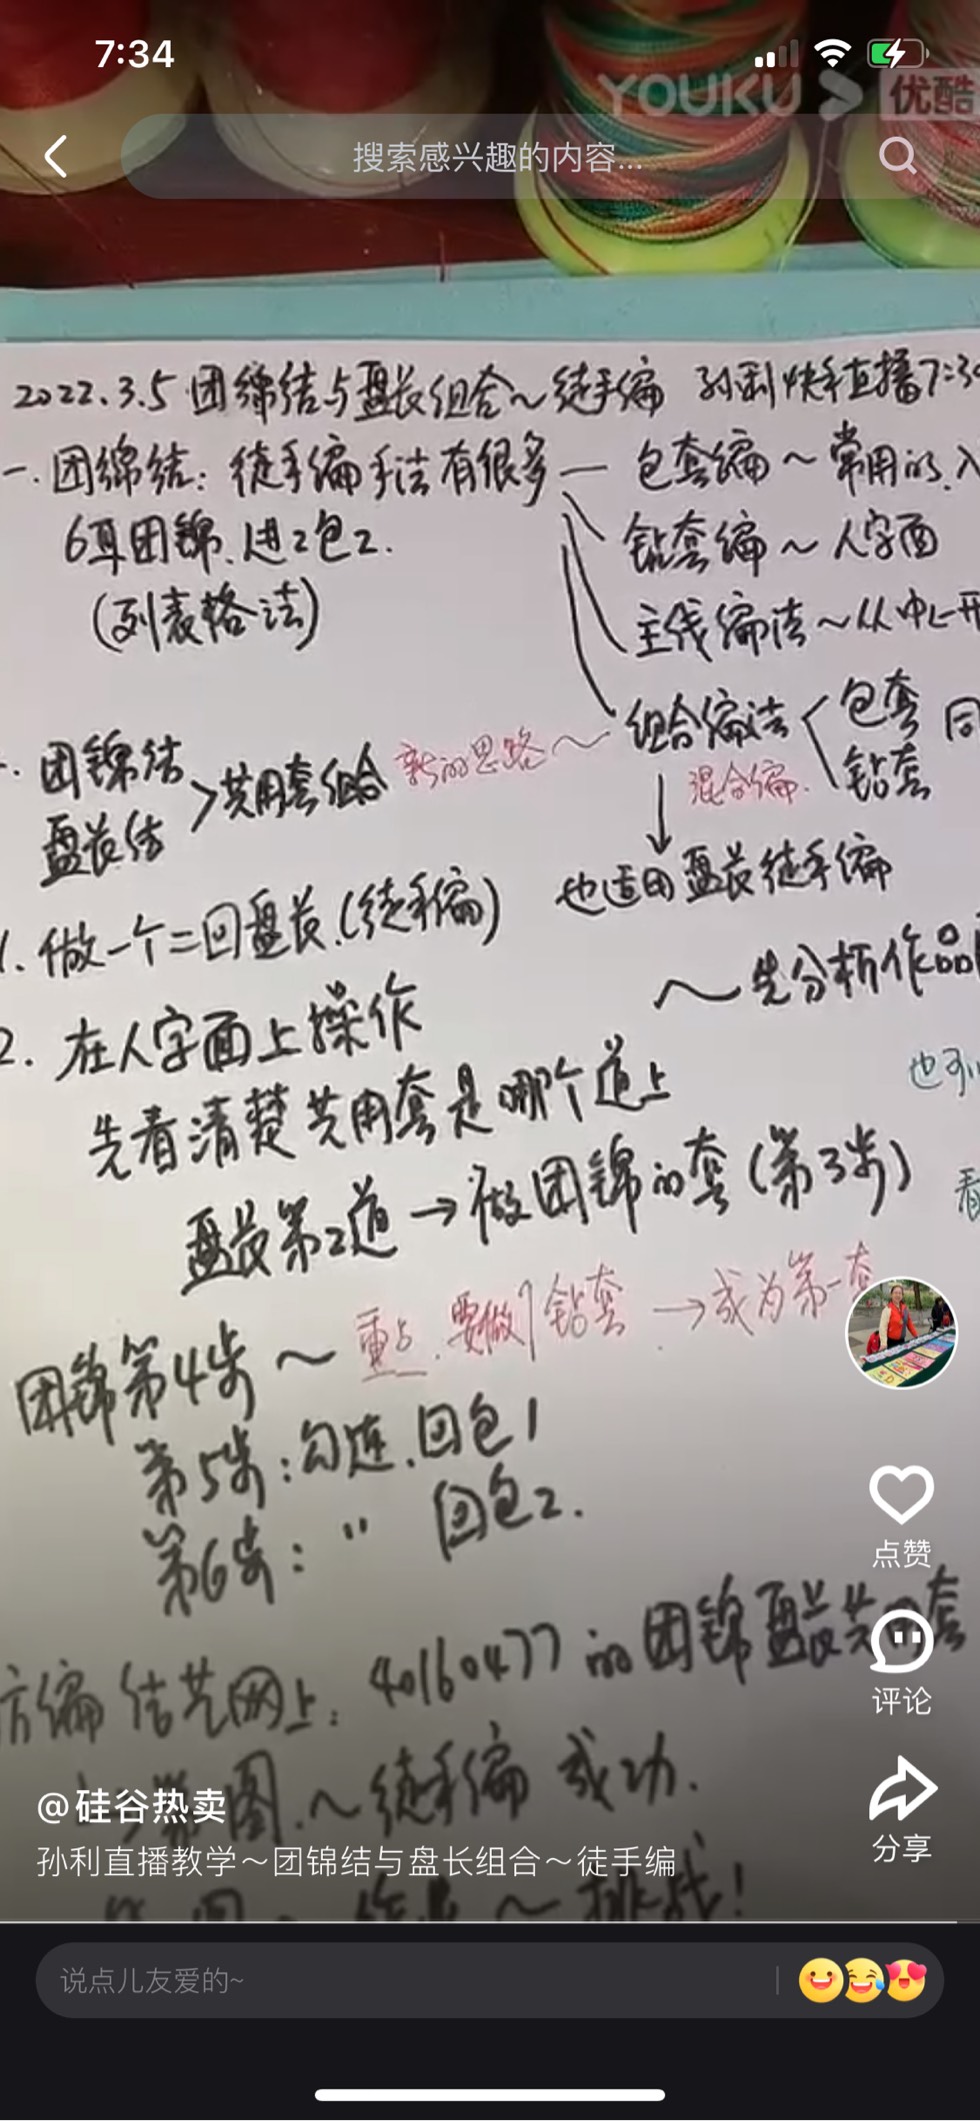 7:34
YOUKU 优酷
搜索感兴趣的内容...
2022.3.5 团锦结与盘长组合～徒手编 孙利快手直播7:30
一.团锦结:徒手编手法有很多— 包套编～常用的.入
6耳团锦.进2包2. 钻套编～人字面
(列表格法) 主线编法～从中心开
组合编法 包套 钻套 同
新的思路～
混合编.
团锦结 盘长结 >共用套组合
也适用盘长徒手编
1.做一个二回盘长.(徒手编)
～先分析作品
2.在人字面上操作
也可以
先看清楚共用套是哪个道上
盘长第2道→做团锦的套(第3步)
看
团锦第4步～重点.要做1钻套→成为第一套
第5步:勾连.回包1
第6步: " 回包2.
编 结艺网上: 40160477的团锦盘长共用套
图.～徒手编 成功.
～挑战!
点赞
评论
分享
@硅谷热卖
孙利直播教学～团锦结与盘长组合～徒手编
说点儿友爱的~